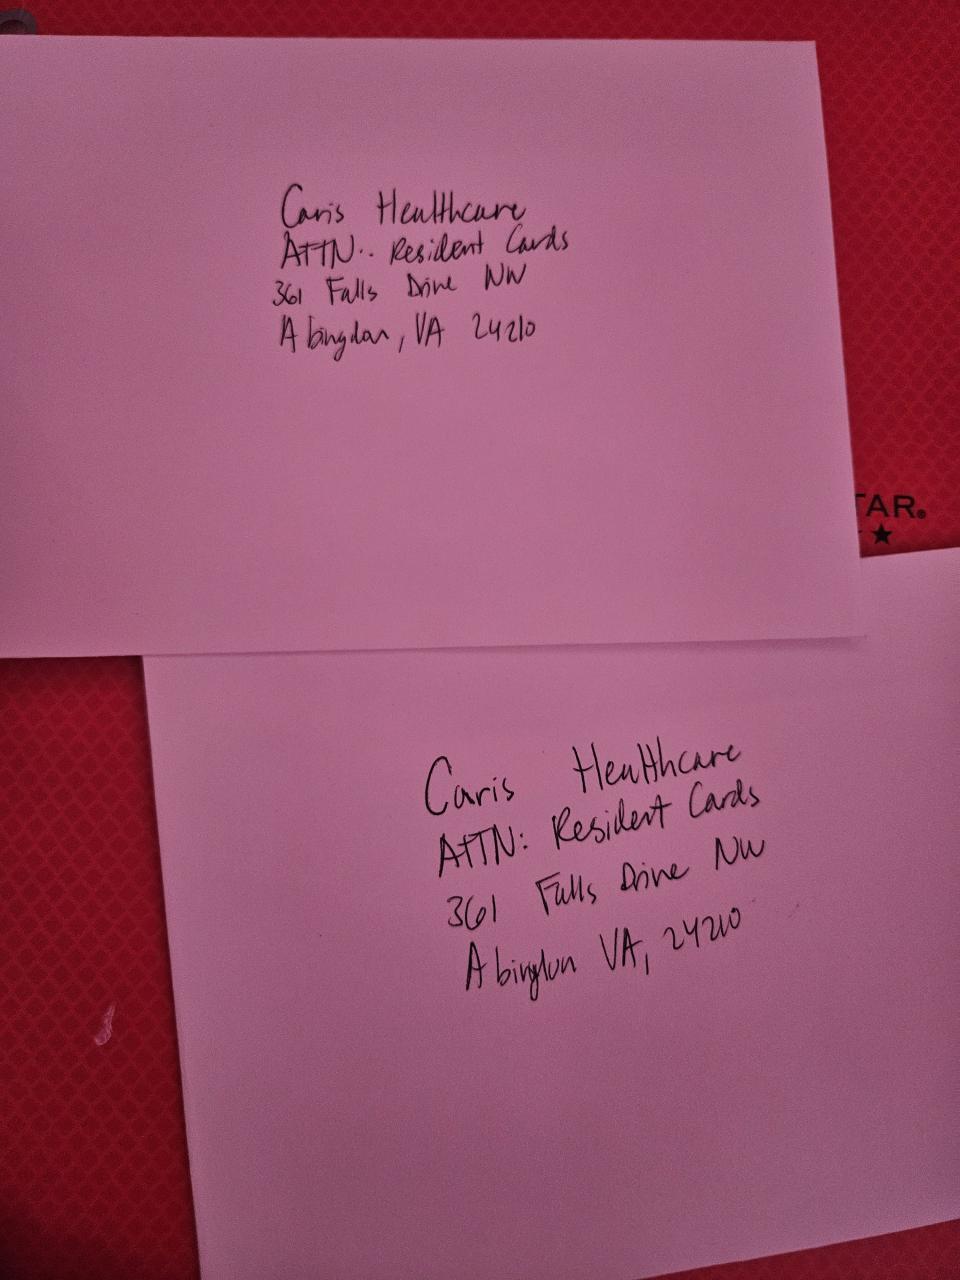 Caris Healthcare
ATTN: Resident Cards
361 Falls Drive NW
Abingdon, VA 24210
TAR®
Caris Healthcare
ATTN: Resident Cards
361 Falls Drive NW
Abingdon VA, 24210